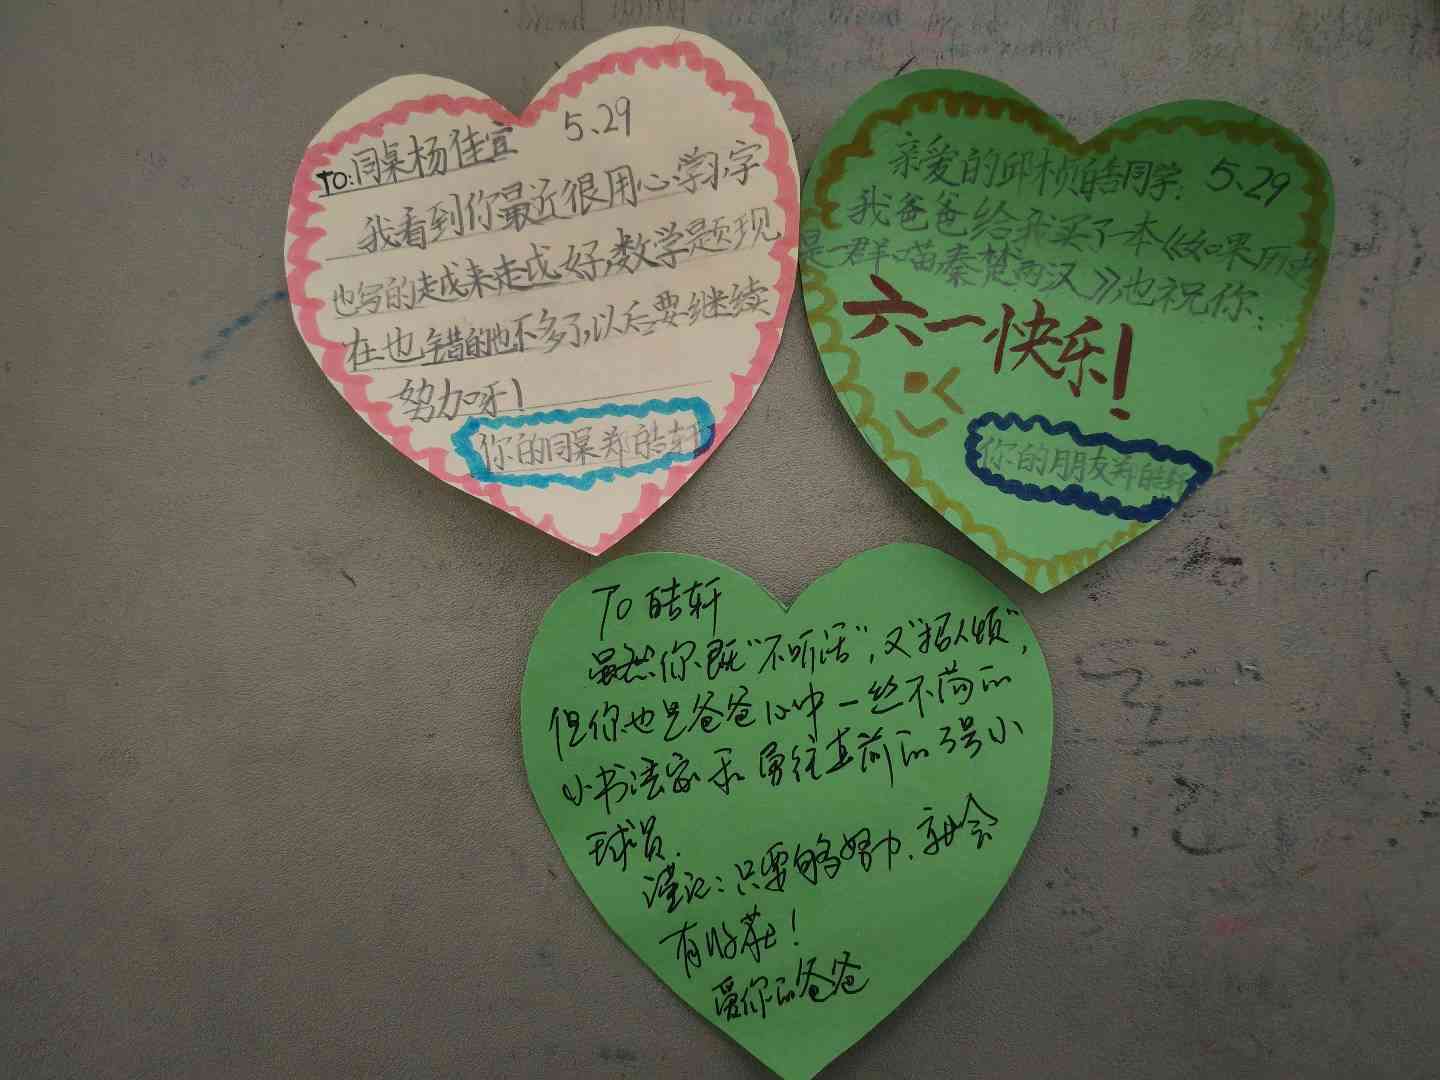 5、29
TO:同桌杨佳宜
我看到你最近很用心学习,字
也写的越来越成好,数学题现
在也错的也不多了,以后要继续
努力呀!
你的同桌郑皓轩
5、29
亲爱的邱桢皓同学:
我爸爸给我买了一本《如果历史
是一群喵秦楚两汉》,也祝你:
六一快乐!
你的朋友郑皓轩
TO 皓轩
虽然你既“不听话”,又“招人烦”,
但你也是爸爸心中一丝不苟的
小书法家和勇往直前的3号小
球员.
谨记:只要能够努力.就会
有收获!
爱你的爸爸